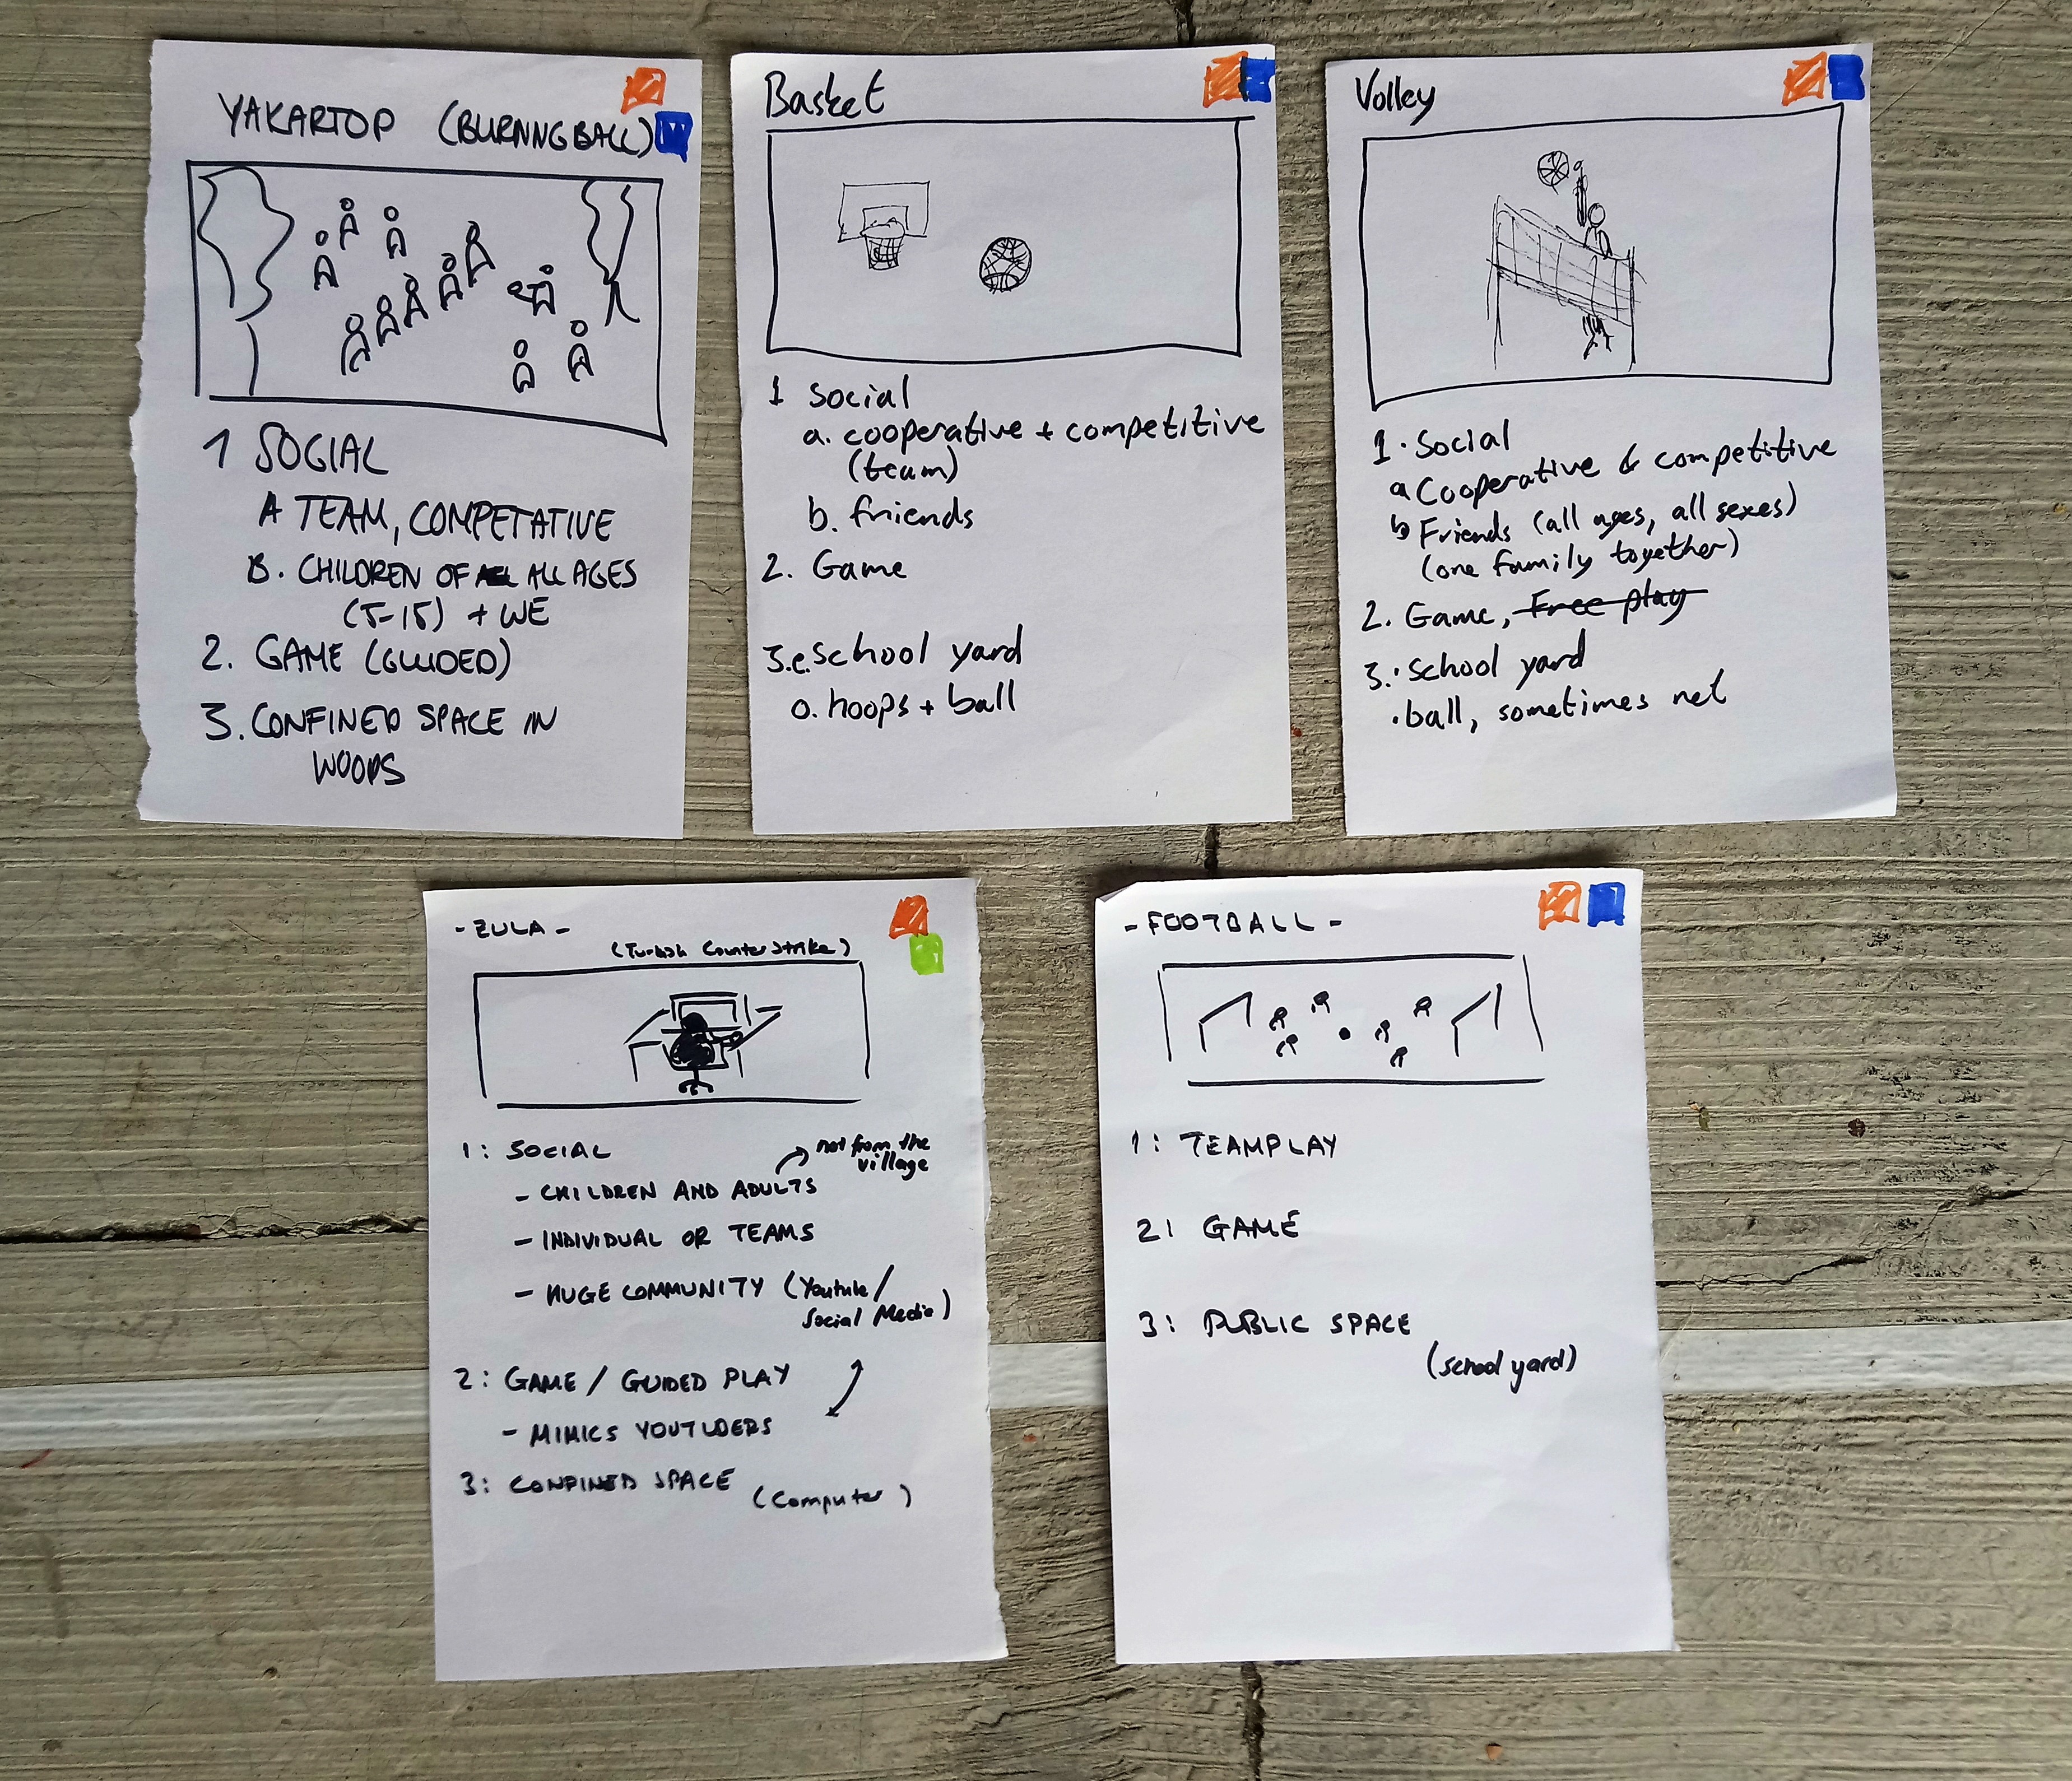 YAKARTOP (BURNNGBALL)
1 SOCIAL
A TEAM, COMPETATIVE
B. CHILDREN OF ALL ALL AGES
(5-15) + WE
2. GAME (GUIDED)
3. CONFINED SPACE IN
WOODS
Basket
1 Social
a. cooperative + competitive
(team)
b. friends
2. Game
3.e. School yard
o. hoops + ball
Volley
1. Social
a Cooperative & competitive
b Friends (all ages, all sexes)
(one family together)
2. Game, Free play
3. • School yard
• ball, sometimes net
- ZULA -
(Turkish Counterstrike)
1: SOCIAL
not from the
village
- CHILDREN AND ADULTS
- INDIVIDUAL OR TEAMS
- HUGE COMMUNITY (Youtube/
Social Media)
2: GAME / GUIDED PLAY
- MIMICS YOUTUBERS
3: CONFINED SPACE
(Computer)
- FOOTBALL -
1: TEAMPLAY
2: GAME
3: PUBLIC SPACE
(school yard)